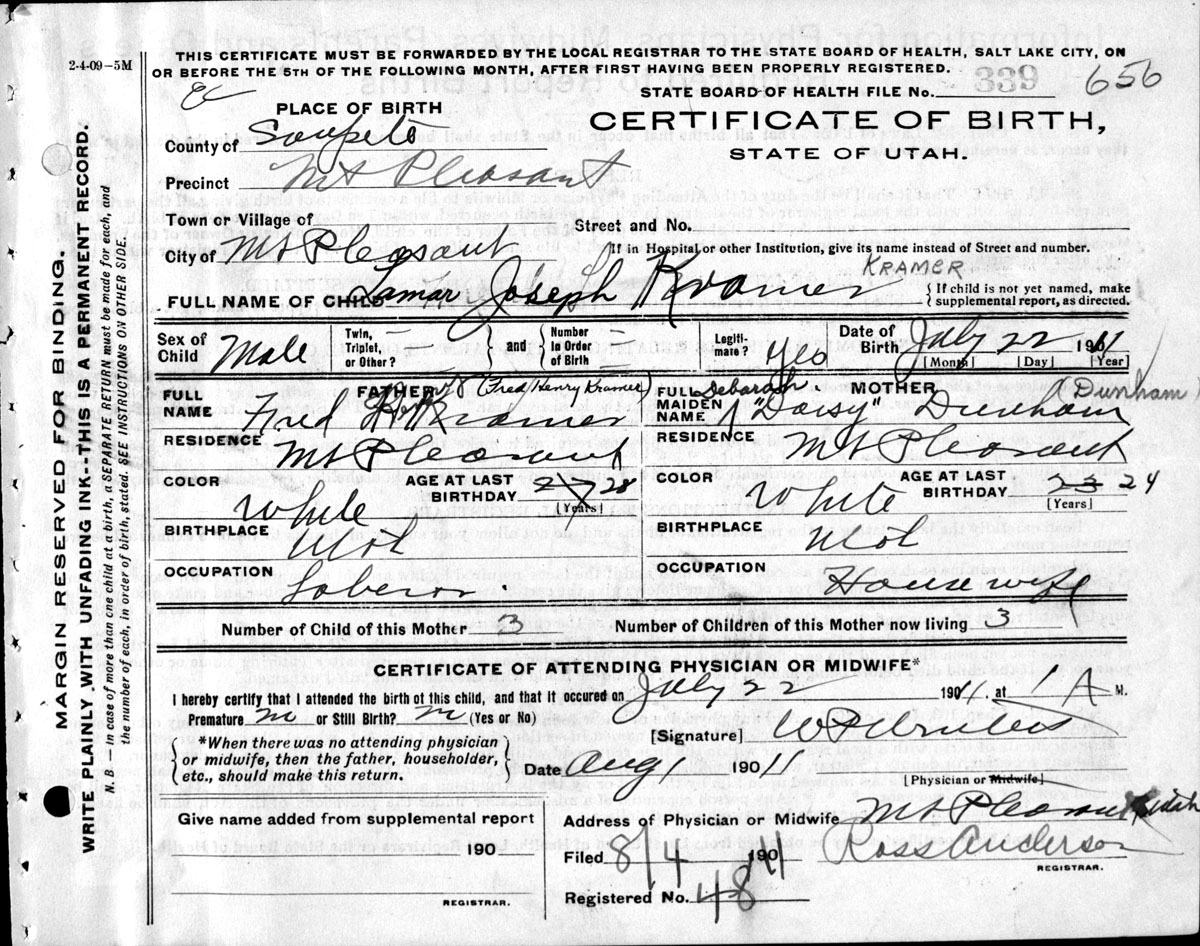 2-4-09-5M
THIS CERTIFICATE MUST BE FORWARDED BY THE LOCAL REGISTRAR TO THE STATE BOARD OF HEALTH, SALT LAKE CITY, ON
OR BEFORE THE 5TH OF THE FOLLOWING MONTH, AFTER FIRST HAVING BEEN PROPERLY REGISTERED.
STATE BOARD OF HEALTH FILE No. 339 656
PLACE OF BIRTH
CERTIFICATE OF BIRTH,
STATE OF UTAH.
County of Sanpete
Precinct Mt Pleasant
Town or Village of
Street and No.
City of Mt Pleasant
If in Hospital or other Institution, give its name instead of Street and number.
KRAMER
FULL NAME OF CHILD Lamar Joseph Kramer
If child is not yet named, make
supplemental report, as directed.
Sex of Child Male
Twin, Triplet, or Other? —
and
Number in Order of Birth —
Legitimate? Yes
Date of Birth July 22 1911
[Month] [Day] [Year]
FATHER (Fred Henry Kramer)
FULL NAME Fred H Kramer
RESIDENCE Mt Pleasant
COLOR White
AGE AT LAST BIRTHDAY 27 28
[Years]
BIRTHPLACE Utah
OCCUPATION Laborer
MOTHER (Dunham)
FULL MAIDEN NAME Deborah "Daisy" Dunham
RESIDENCE Mt Pleasant
COLOR White
AGE AT LAST BIRTHDAY 23 24
[Years]
BIRTHPLACE Utah
OCCUPATION Housewife
Number of Child of this Mother 3
Number of Children of this Mother now living 3
CERTIFICATE OF ATTENDING PHYSICIAN OR MIDWIFE*
I hereby certify that I attended the birth of this child, and that it occured on July 22 1911. at 1 A M.
Premature no or Still Birth? no (Yes or No)
[Signature] W P
*When there was no attending physician
or midwife, then the father, householder,
etc., should make this return.
Date Aug 1 1911
[Physician or Midwife]
Give name added from supplemental report
190
REGISTRAR.
Address of Physician or Midwife Mt Pleasant Utah
Filed 8/4 1911
Ross Anderson
REGISTRAR.
Registered No. 48
MARGIN RESERVED FOR BINDING.
WRITE PLAINLY WITH UNFADING INK--THIS IS A PERMANENT RECORD.
N. B. — in case of more than one child at birth, a SEPARATE RETURN must be made for each, and
the number of each, in order of birth, stated. SEE INSTRUCTIONS ON OTHER SIDE.